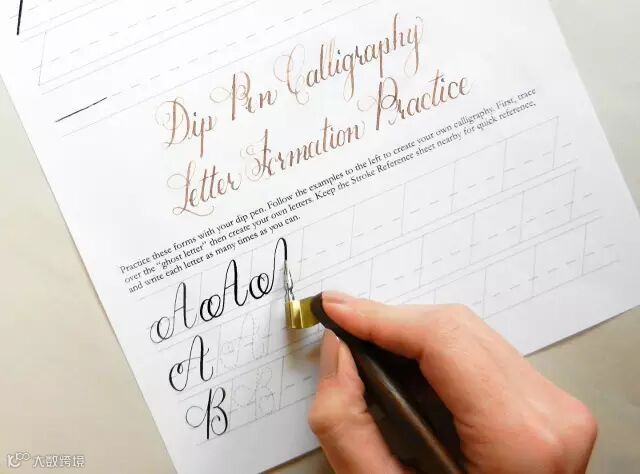 Dip Pen Calligraphy
Letter Formation Practice
Practice these forms with your dip pen. Follow the examples to the left to create your own calligraphy. First, trace
over the "ghost letter" then create your own letters. Keep the Stroke Reference sheet nearby for quick reference,
and write each letter as many times as you can.
A A A
A A A
B B B
大数跨境